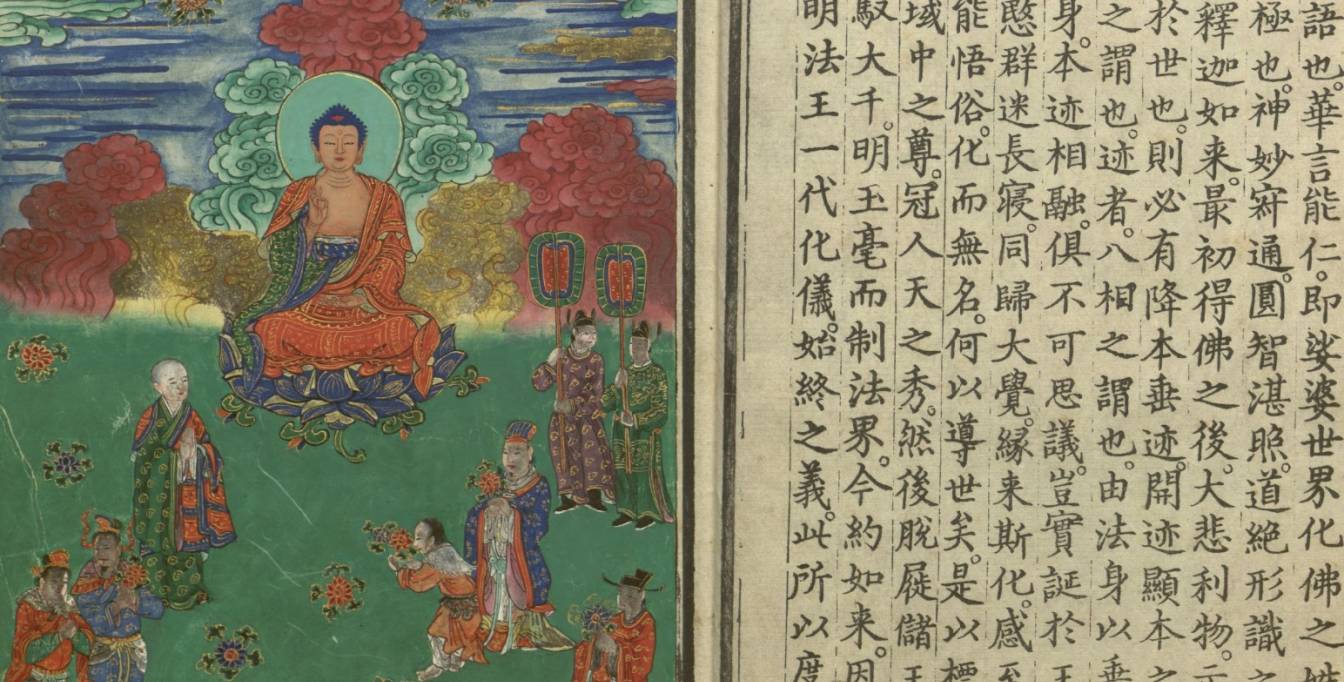 語也。華言能仁。即娑婆世界化佛之姓
極也。神妙寂通。圓智湛照。道絶形識之
釋迦如来。最初得佛之後。大悲利物。示
於世也。則必有降本垂迹。開迹顯本之
之謂也。迹者。八相之謂也。由法身以垂
身。本迹相融。俱不可思議。豈實誕於王
愍群迷長寢。同歸大覺。緣来斯化。感至
能悟俗。化而無名。何以導世矣。是以標
域中之尊。冠人天之秀。然後脫屣儲
馭大千。明玉毫而制法界。今約如来。因
明法王一代化儀。始終之義。此所以度